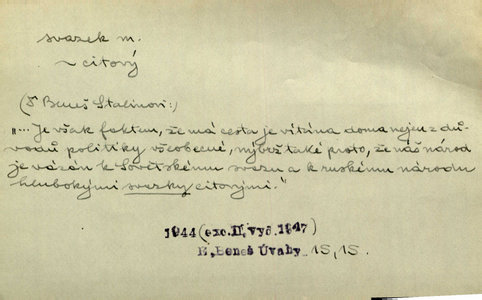 svazek m.
~ citový
(P Beneš Stalinovi:)
"... Je však faktem, že má cesta je vítána doma nejen z dů-
vodů politiky všeobecné, nýbrž také proto, že náš národ
je vázán k Sovětskému svazu a k ruskému národu
hlubokými svazky citovými."
1944 (exc. II. vyd. 1947)
E. Beneš Úvahy 15, 15.